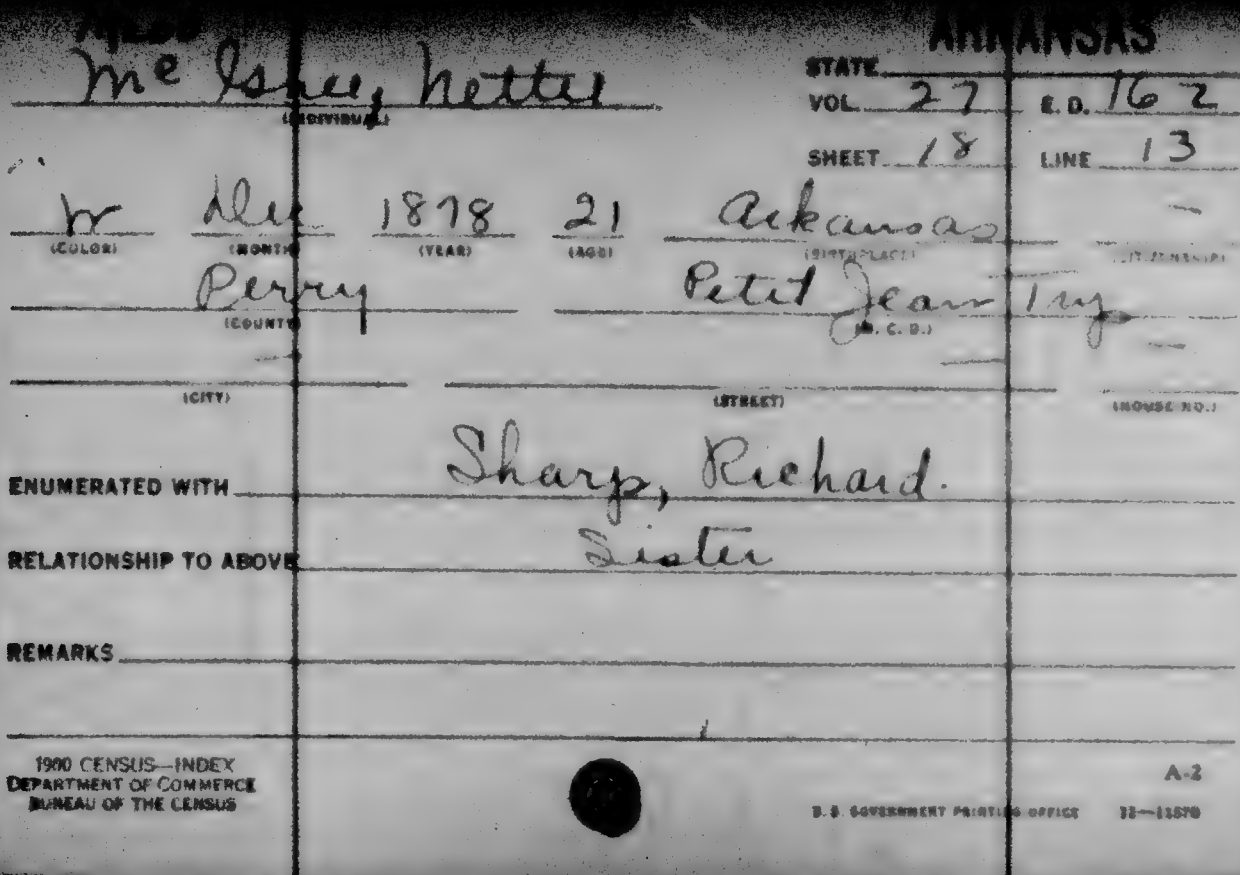 ARKANSAS
Mc Isree, Nettie
(INDIVIDUAL)
STATE
VOL. 27 E. D. 162
SHEET 18 LINE 13
W 1878 21 Arkansas
(COLOR) (MONTH) (YEAR) (AGE) (BIRTHPLACE) (CITIZENSHIP)
Perry Petit Jean
(COUNTY) (M. C. D.)
(CITY) (STREET) (HOUSE NO.)
ENUMERATED WITH Sharp, Richard.
RELATIONSHIP TO ABOVE Sister
REMARKS
1900 CENSUS—INDEX
DEPARTMENT OF COMMERCE
BUREAU OF THE CENSUS
A-2
U. S. GOVERNMENT PRINTING OFFICE